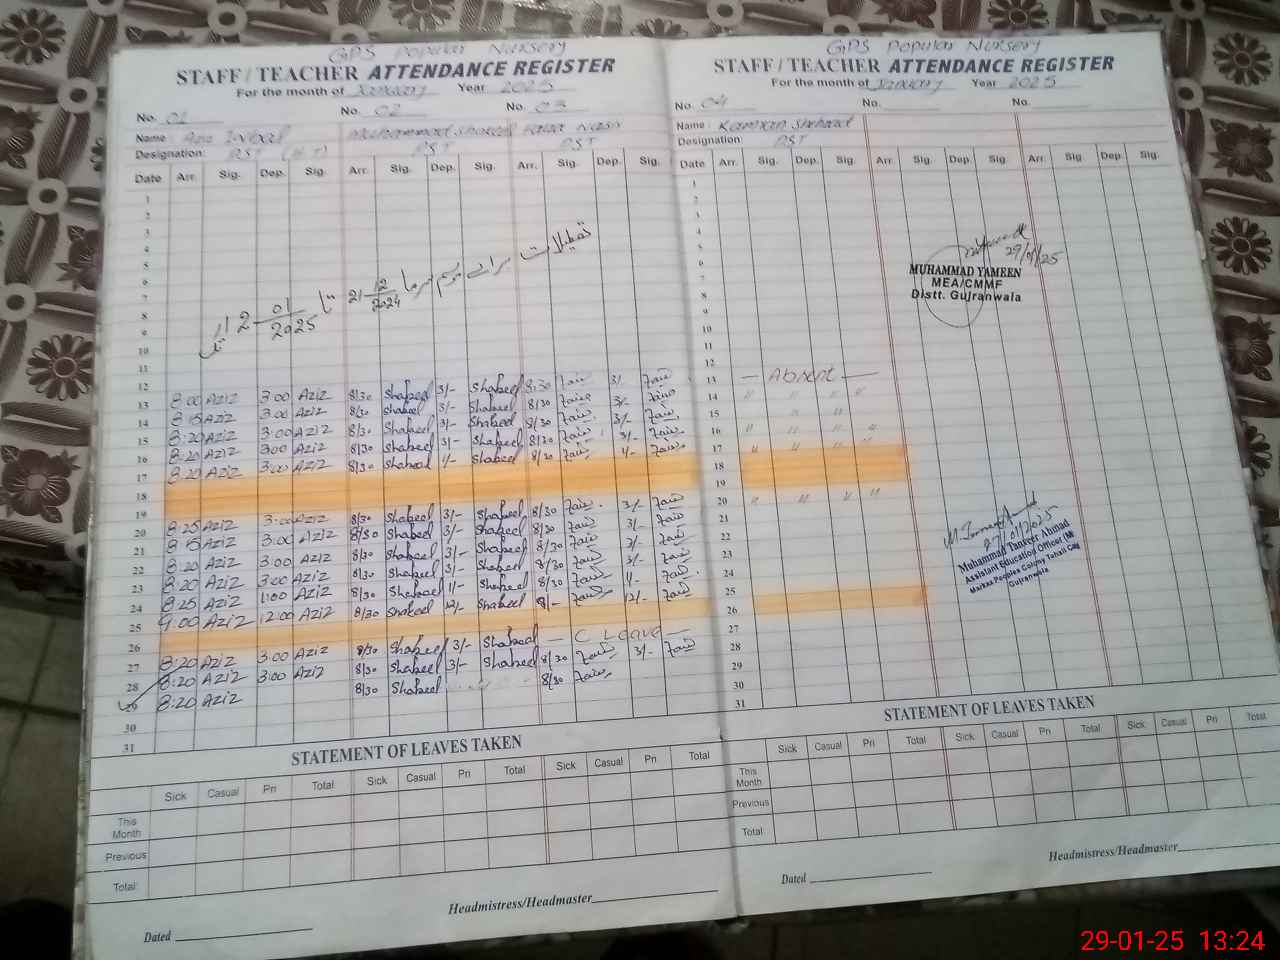 GPS Popular Nursery
STAFF / TEACHER ATTENDANCE REGISTER
For the month of January Year 2025
No. 01 No. 02 No. 03
Name: Aziz Muhammad Shakeel
Designation: PST (H.T) PST PST
Date Arr. Sig. Dep. Sig. Arr. Sig. Dep. Sig. Arr. Sig. Dep. Sig.
1
2
3
4
5
6
7
8
9
10
11
تعطیلات برائے موسم سرما 21-12-2024 تا 12-01-2025
12
13 8:00 Aziz 3:00 Aziz 8/30 Shakeel 3/- Shakeel 8/30 3/-
14 8:15 Aziz 3:00 Aziz 8/30 Shakeel 3/- Shakeel 8/30 3/-
15 8:20 Aziz 3:00 Aziz 8/30 Shakeel 3/- Shakeel 8/30 3/-
16 8:20 Aziz 3:00 Aziz 8/30 Shakeel 3/- Shakeel 8/30 3/-
17 8:20 Aziz 3:00 Aziz 8/30 Shakeel 1/- Shakeel 8/30 1/-
18
19
20 8:25 Aziz 3:00 Aziz 8/30 Shakeel 3/- Shakeel 8/30 3/-
21 8:15 Aziz 3:00 Aziz 8/30 Shakeel 3/- Shakeel 8/30 3/-
22 8:20 Aziz 3:00 Aziz 8/30 Shakeel 3/- Shakeel 8/30 3/-
23 8:20 Aziz 3:00 Aziz 8/30 Shakeel 3/- Shakeel 8/30 3/-
24 8:25 Aziz 1:00 Aziz 8/30 Shakeel 1/- Shakeel 8/30 1/-
25 9:00 Aziz 12:00 Aziz 8/30 Shakeel 12/- Shakeel 8/- 12/-
26
27 8:20 Aziz 3:00 Aziz 8/30 Shakeel 3/- Shakeel — C Leave —
28 8:20 Aziz 3:00 Aziz 8/30 Shakeel 3/- Shakeel 8/30 3/-
29 8:20 Aziz 8/30 Shakeel 8/30
30
31
STATEMENT OF LEAVES TAKEN
Sick Casual Pri Total Sick Casual Pri Total Sick Casual Pri Total
This Month
Previous
Total:
Headmistress/Headmaster
Dated
GPS Popular Nursery
STAFF / TEACHER ATTENDANCE REGISTER
For the month of January Year 2025
No. 04 No. No.
Name: Kamran Shehzad
Designation: PST
Date Arr. Sig. Dep. Sig. Arr. Sig. Dep. Sig. Arr. Sig. Dep. Sig.
1
2
3
4
5
6
7
8
9
10
11
12
13 — Absent —
14 " " " "
15 " " "
16 " " " "
17 " " " "
18
19
20 " " " "
21
22
23
24
25
26
27
28
29
30
31
29/01/25
MUHAMMAD YAMEEN
MEA/CMMF
Distt. Gujranwala
27/01/2025
Muhammad Tanveer Ahmad
Assistant Education Officer (M)
Markaz Peoples Colony Tehsil City
Gujranwala
STATEMENT OF LEAVES TAKEN
Sick Casual Pri Total Sick Casual Pri Total Sick Casual Pri Total
This Month
Previous
Total
Headmistress/Headmaster
Dated
29-01-25 13:24